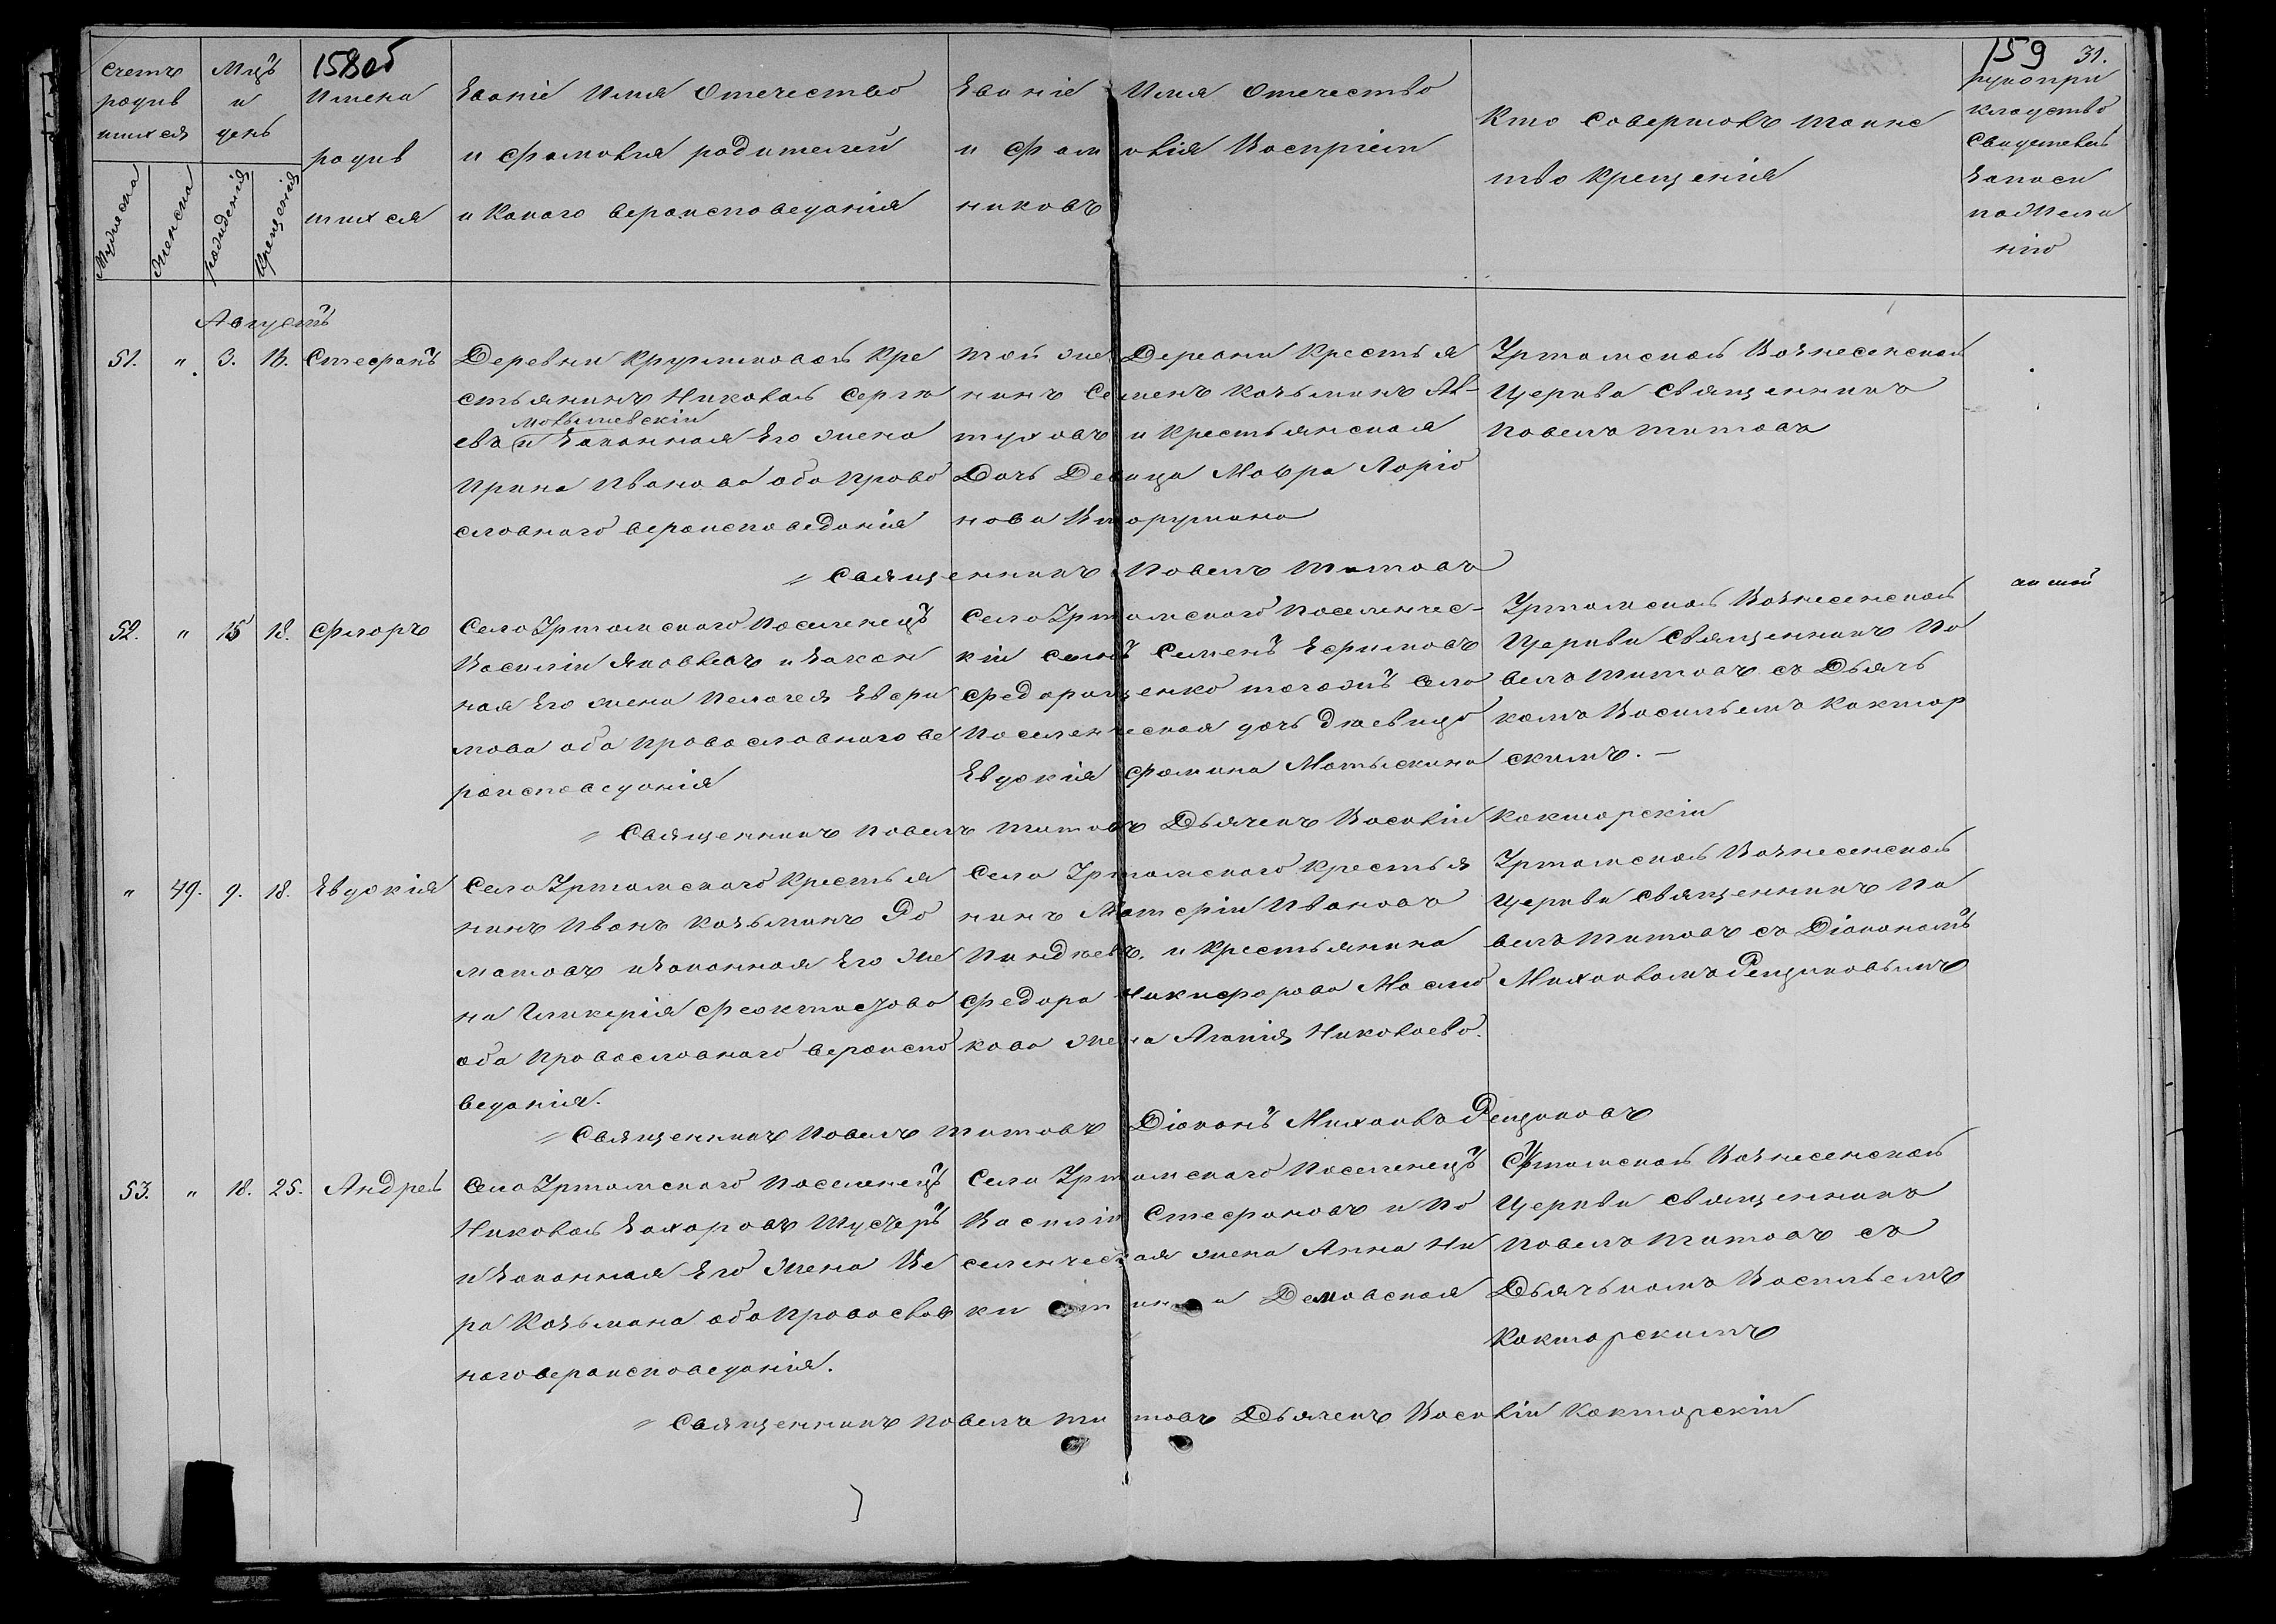 158 об
159 31.
Счетъ
родив
шихся
Мужеска
Женска
Мцъ
и
день
рожденія
крещенія
Имена
родив
шихся
Званіе Имя Отечество
и Фамилия родителей
и Какаго вероисповеданія
Званіе Имя Отечество
и Фамилія Воспріем
никовъ
Кто Совершилъ таинс
тво крещенія
рукопри
кладство
Свидетелей
Записи
по желан
нію
Августъ
51. " 3. 13. Стефанъ
Деревни Кругликовой Кре
стьянинъ Николай Серге
евъ и Законная Его жена
Ирина Иванова оба Право
славнаго вероисповеданія
Той же Деревни Крестья
нинъ Семенъ Козьминъ Ал-
туховъ и Крестьянская
Дочь Девица Мавра Ларіо
нова Вторушина
Уртамской Вознесенской
Церкви Священникъ
Павелъ Титовъ
Священникъ Павелъ Титовъ
52. " 15 18. Флоръ
Села Уртамского Поселенецъ
Василій Яковлевъ и Закон
ная Его жена Пелагея Ефри
мова оба Православнаго ве
роисповеданія
Села Уртамского Поселенчес-
кій сынъ Семенъ Ефимовъ
Федоращенко тогожъ села
Поселенческая дочь дѣвица
Евдокія Фомина Матыскина
Уртамской Вознесенской
Церкви Священникъ Па
велъ Титовъ съ Дьяч
комъ Васильемъ Коктор
скимъ. —
Священникъ Павелъ Титовъ Дьячекъ Василій Кокторскій
" 49. 9. 18. Евдокія
Села Уртамского Крестья
нинъ Иванъ Козьминъ До
матовъ и Законная Его же
на Гликерія Феоктистова
оба Православнаго вероиспо
веданія.
Села Уртамского Крестья
нинъ Матфій Ивановъ
Пиндюевъ. и Крестьянина
Федора Никифорова Масло
кова жена Агапія Николаева.
Уртамской Вознесенской
Церкви Священникъ Па
велъ Титовъ съ Діакономъ
Михаиломъ Рещиковымъ
Священникъ Павелъ Титовъ Діаконъ Михаилъ Рещиковъ
53. " 18. 25. Андрей
Села Уртамского Поселенецъ
Николай Захаровъ
и Законная Его Жена Ве
ра Козьмина оба Православ
наго вероисповеданія.
Села Уртамского Поселенецъ
Василій Стефановъ и По
селенческая жена Анна Ни
Демовская
Уртамской Вознесенской
Церкви Священникъ
Павелъ Титовъ съ
Дьячькомъ Васильемъ
Кокторскимъ
Священникъ Павелъ Титовъ Дьячекъ Василій Кокторскій